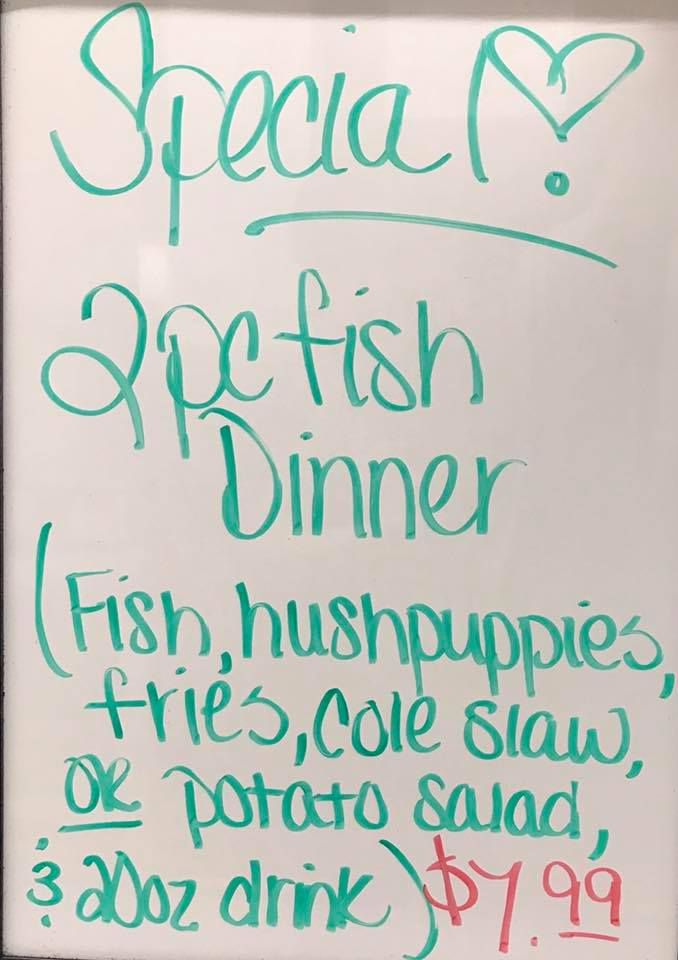 Special!
2pc fish
Dinner
(Fish, hushpuppies,
fries, cole slaw,
OR potato salad,
& 20oz drink) $7.99